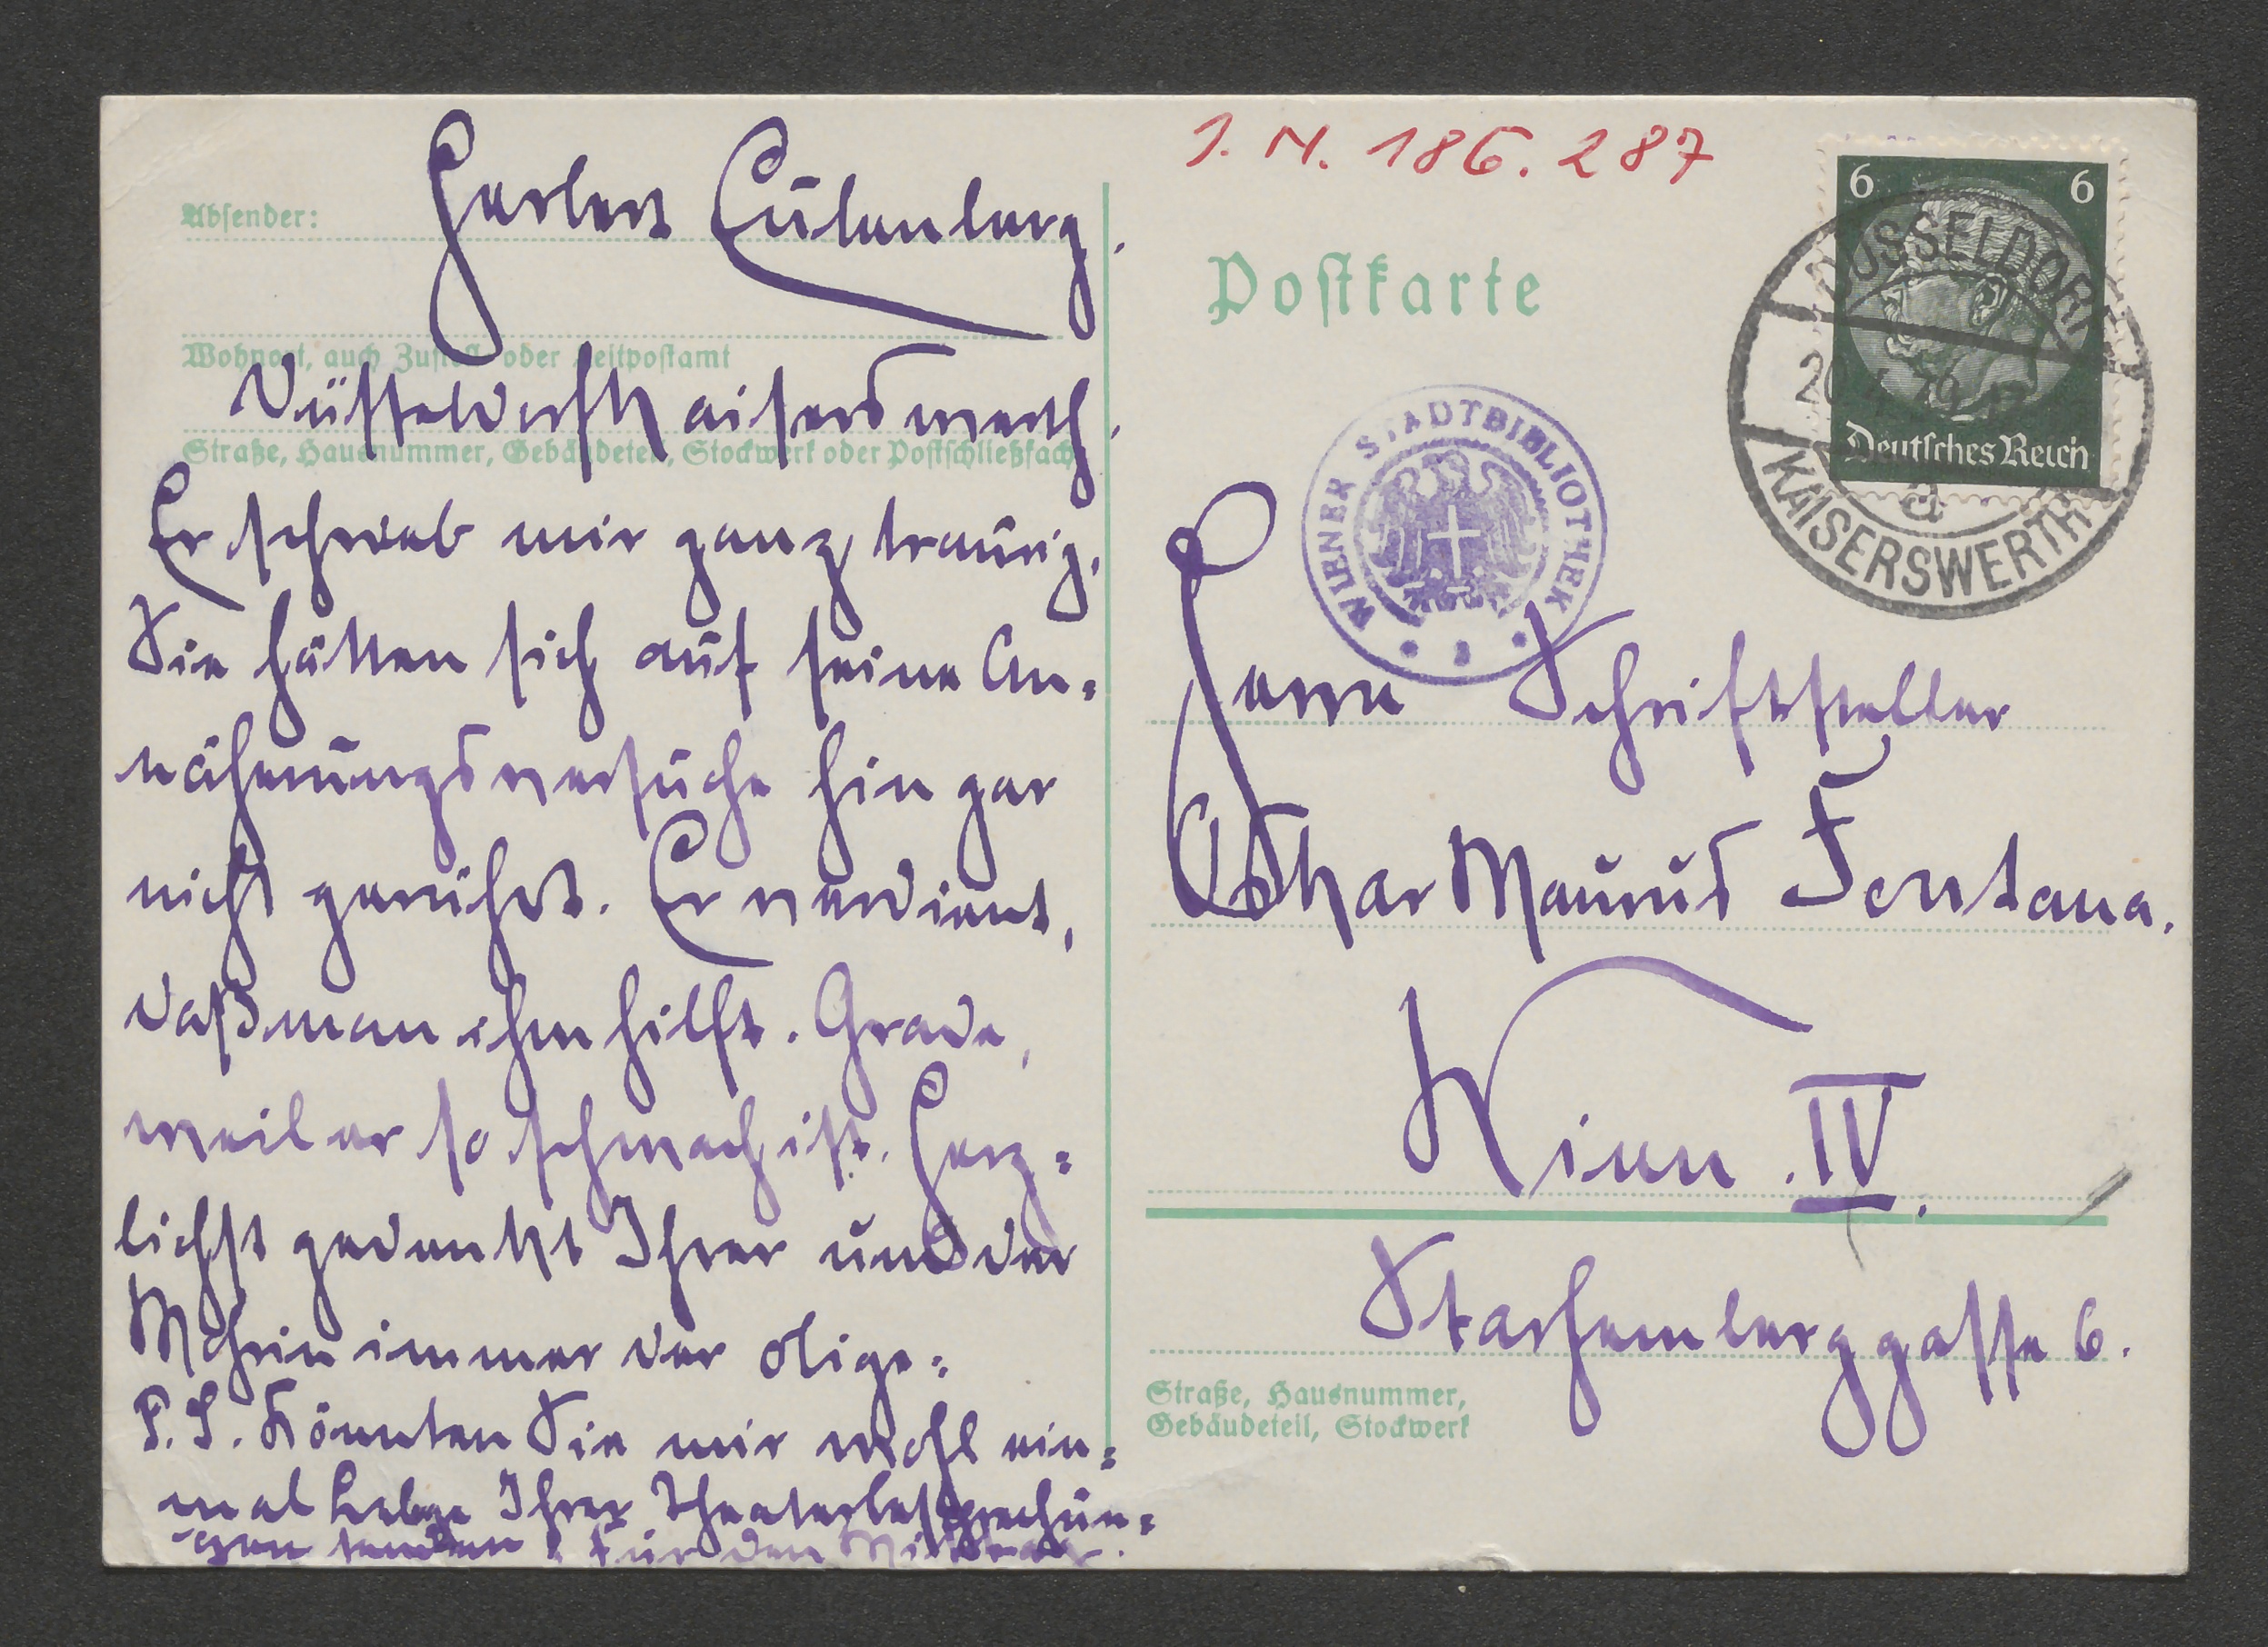 Absender:
Herbert Eulenberg.
Wohnort, auch Zustell- oder Leitpostamt
Düsseldorf Kaiserswerth.
Straße, Hausnummer, Gebäudeteil, Stockwerk oder Postschließfach
Er schrieb mir ganz traurig,
Sie hätten sich auf seine An-
näherungsversuche hin gar
nicht gerührt. Er verdient,
daß man ihm hilft. Grade,
weil er so schwach ist. Herz-
lichst gedenkt Ihrer und der
immer der olige:
P.S. Könnten Sie mir wohl ein-
mal Ihrer Theaterbesprechun-
gen senden? Für den
I. N. 186.287
Postkarte
6 6
Deutsches Reich
DÜSSELDORF
KAISERSWERTH
a
WIENER STADTBIBLIOTHEK
Herrn Schriftsteller
Oskar Maurus Fontana.
Wien. IV.
Starhemberggasse 6.
Straße, Hausnummer,
Gebäudeteil, Stockwerk